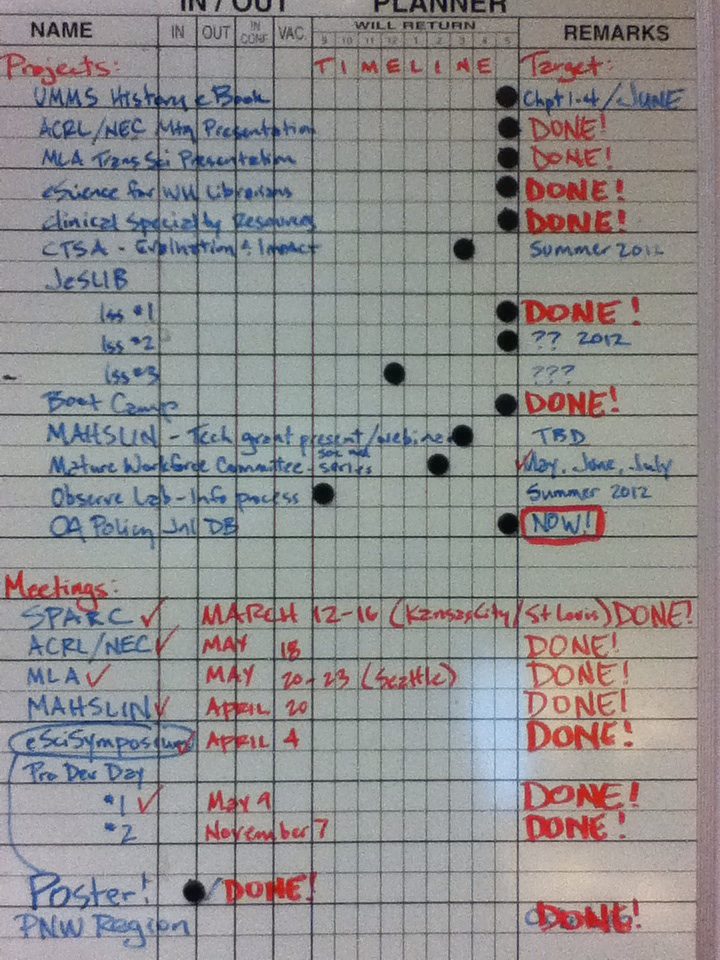 IN / OUT PLANNER
NAME IN OUT IN CONF VAC. WILL RETURN REMARKS
9 10 11 12 1 2 3 4 5
Projects: TIMELINE Target:
UMMS History eBook Chpt 1-4/JUNE
ACRL/NEC Mtg Presentation DONE!
MLA TransSci Presentation DONE!
eScience for WH Librarians DONE!
Clinical Specialty Resources DONE!
CTSA - Evaluation & Impact Summer 2012
JeSLIB
Iss #1 DONE!
Iss #2 ?? 2012
Iss #3 ???
Boot Camp DONE!
MAHSLIN - Tech grant present/webinar TBD
Mature Workforce Committee - soc med series ✓May, June, July
Observe Lab - Info process Summer 2012
OA Policy Jnl DB NOW!
Meetings:
SPARC ✓ MARCH 12-16 (Kansas City/St Louis) DONE!
ACRL/NEC ✓ MAY 18 DONE!
MLA ✓ MAY 20-23 (Seattle) DONE!
MAHSLIN ✓ APRIL 20 DONE!
eSciSymposium APRIL 4 DONE!
Pro Dev Day
#1 ✓ May 9 DONE!
#2 November 7 DONE!
Poster! ✓ DONE!
PNW Region DONE!